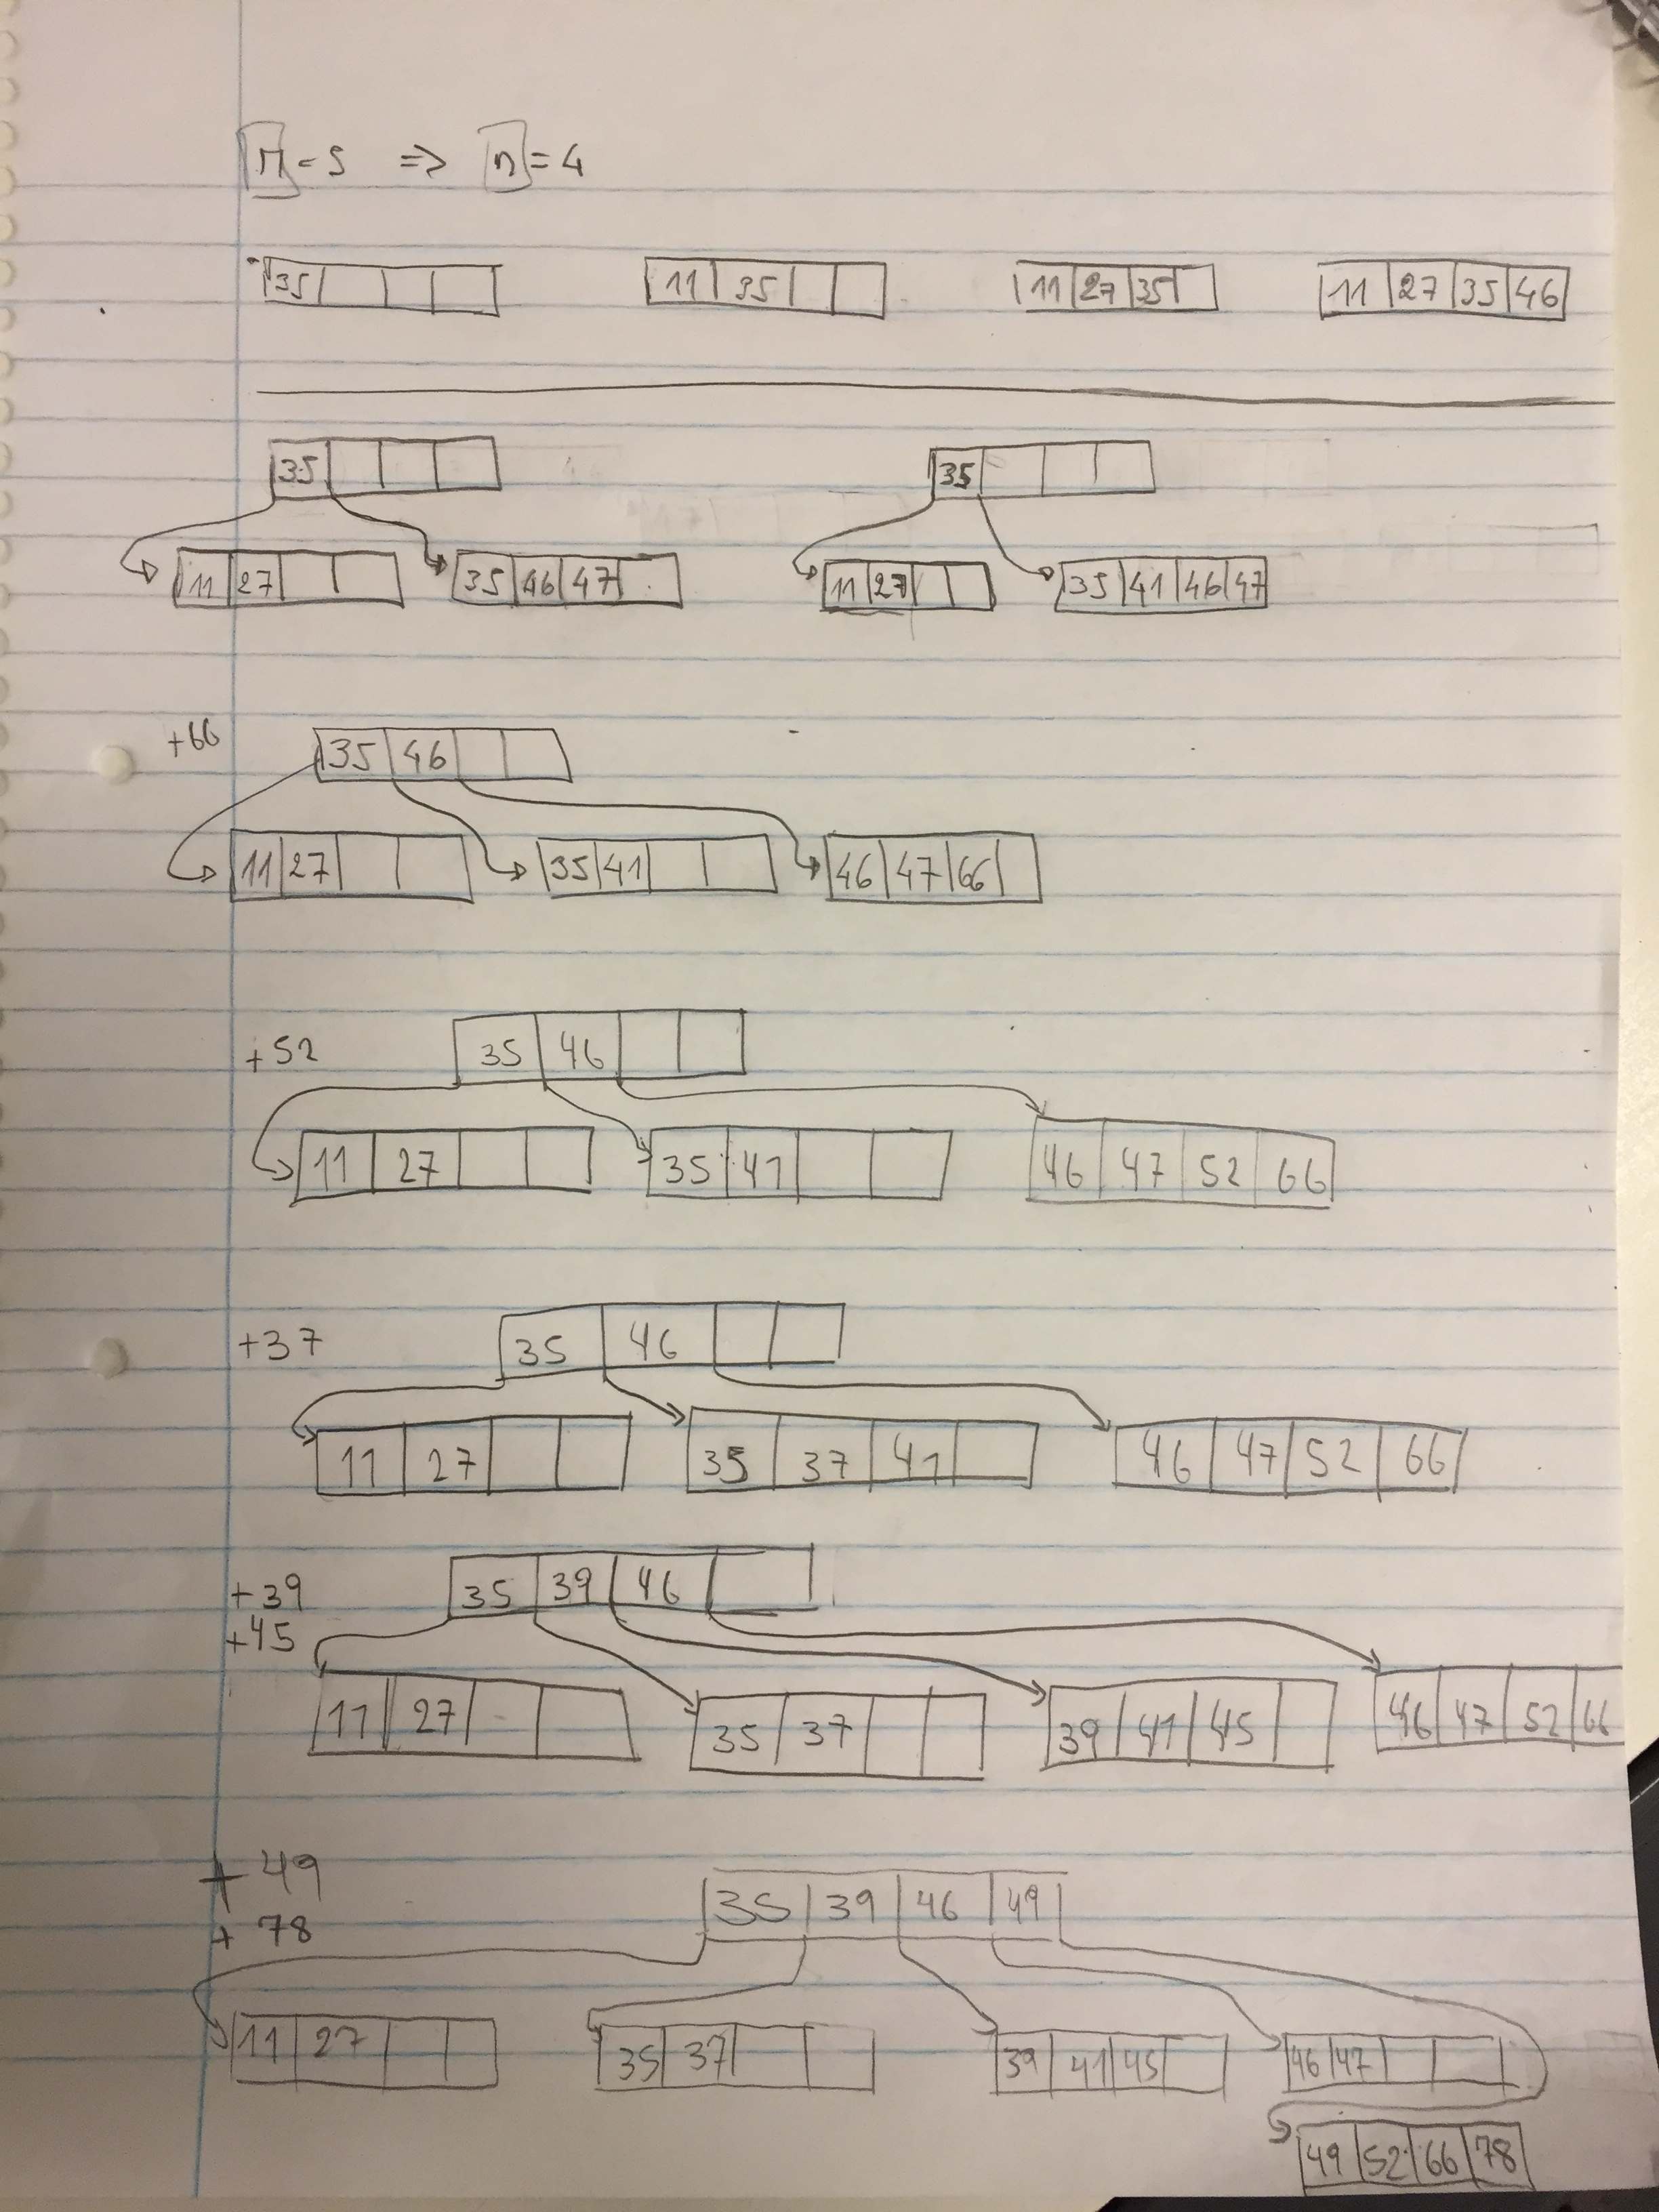 M = 5 => n = 4
35 11 35 11 27 35 11 27 35 46
35 35
11 27 35 46 47 11 27 35 41 46 47
+66 35 46
11 27 35 41 46 47 66
+52 35 46
11 27 35 41 46 47 52 66
+37 35 46
11 27 35 37 41 46 47 52 66
+39 35 39 46
+45
11 27 35 37 39 41 45 46 47 52 66
+49 35 39 46 49
+78
11 27 35 37 39 41 45 46 47
49 52 66 78